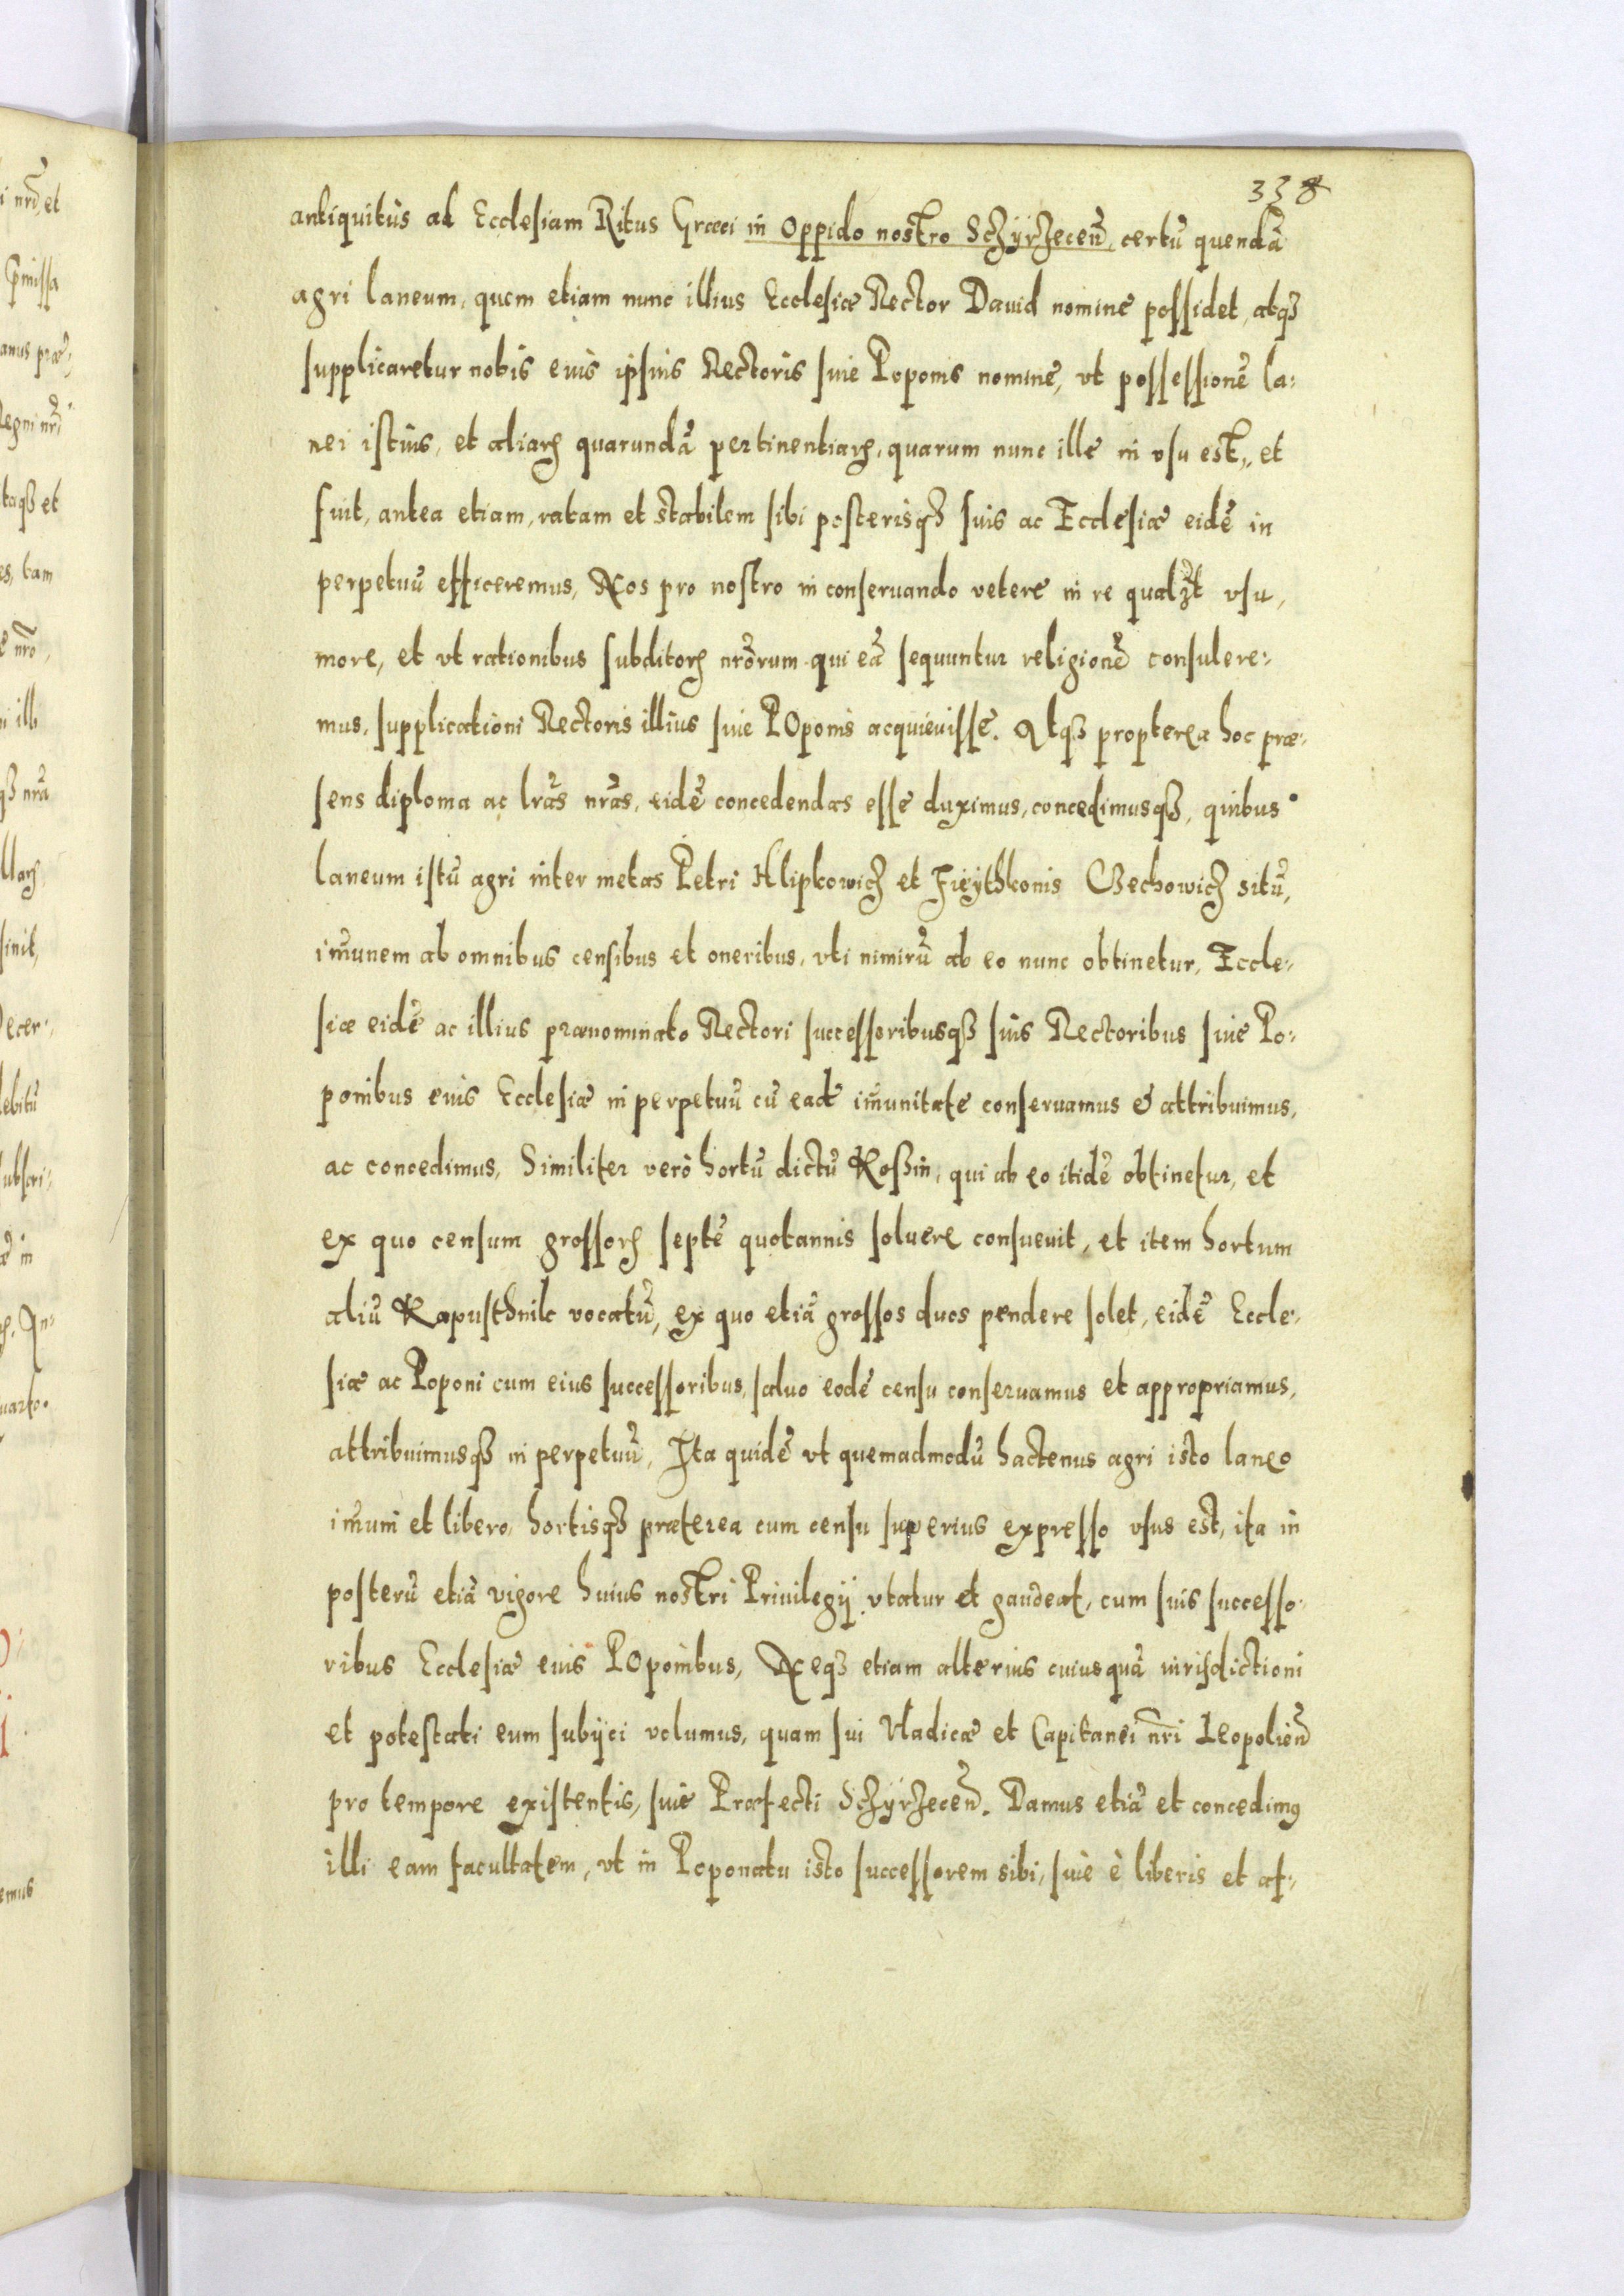 338
antiquitùs ad Ecclesiam Ritus Græci in Oppido nostro Sczÿrzeceñ, certũ quendã
agri laneum, quem etiam nunc illius Ecclesiæ Rector Dauid nomine possidet, atqꝫ
supplicaretur nobis eius ipsius Rectoris siue Poponis nomine, vt possessionẽ la:
nei istius, et aliarꝝ quarundã pertinentiarꝝ, quarum nunc ille in vsu est, et
fuit, antea etiam, ratam et stabilem sibi posterisqꝫ suis ac Ecclesiæ eidẽ in
perpetuũ efficeremus, Nos pro nostro in conseruando vetere in re qualꝫt vsu,
more, et vt rationibus subditorꝝ nr̃orum qui eã sequuntur religionẽ consulere:
mus, supplicationi Rectoris illius siue POponis acquieuisse. Atqꝫ propterea hoc præ:
sens diploma ac lr̃as nr̃as, eidẽ concedendas esse duximus, concedimusqꝫ, quibus
laneum istũ agri inter metas Petri Hlipkowicz et Fieÿthkonis Czechowicz sitũ,
im̃unem ab omnibus censibus et oneribus, vti nimirũ ab eo nunc obtinetur, Eccle:
siæ eidẽ ac illius prænominato Rectori successoribusqꝫ suis Rectoribus siue Po:
ponibus eius Ecclesiæ in perpetuũ cũ eadẽ im̃unitate conseruamus & attribuimus,
ac concedimus, Similiter verò hortũ dictũ Roßin, qui ab eo itidẽ obtinetur, et
ex quo censum grossorꝝ septẽ quotannis soluere consueuit, et item hortum
aliũ Kapusthnik vocatũ, ex quo etiã grossos duos pendere solet, eidẽ Eccle:
siæ ac Poponi cum eius successoribus, saluo eodẽ censu conseruamus et appropriamus,
attribuimusqꝫ in perpetuũ, Ita quidẽ vt quemadmodũ hactenus agri isto laneo
im̃uni et libero, hortisqꝫ præterea cum censu superius expresso vsus est, ita in
posterũ etiã vigore huius nostri Priuilegij vtatur et gaudeat, cum suis successo:
ribus Ecclesiæ eius POponibus, Neqꝫ etiam alterius cuiusquã iurisdictioni
et potestati eum subijci volumus, quam sui Vladicæ et Capitanei nr̃i Leopolieñ
pro tempore existentis, siue Præfecti Sczÿrzeceñ. Damus etiã et concedimꝯ
illi eam facultatem, vt in Poponatu isto successorem sibi, siue è liberis et af: